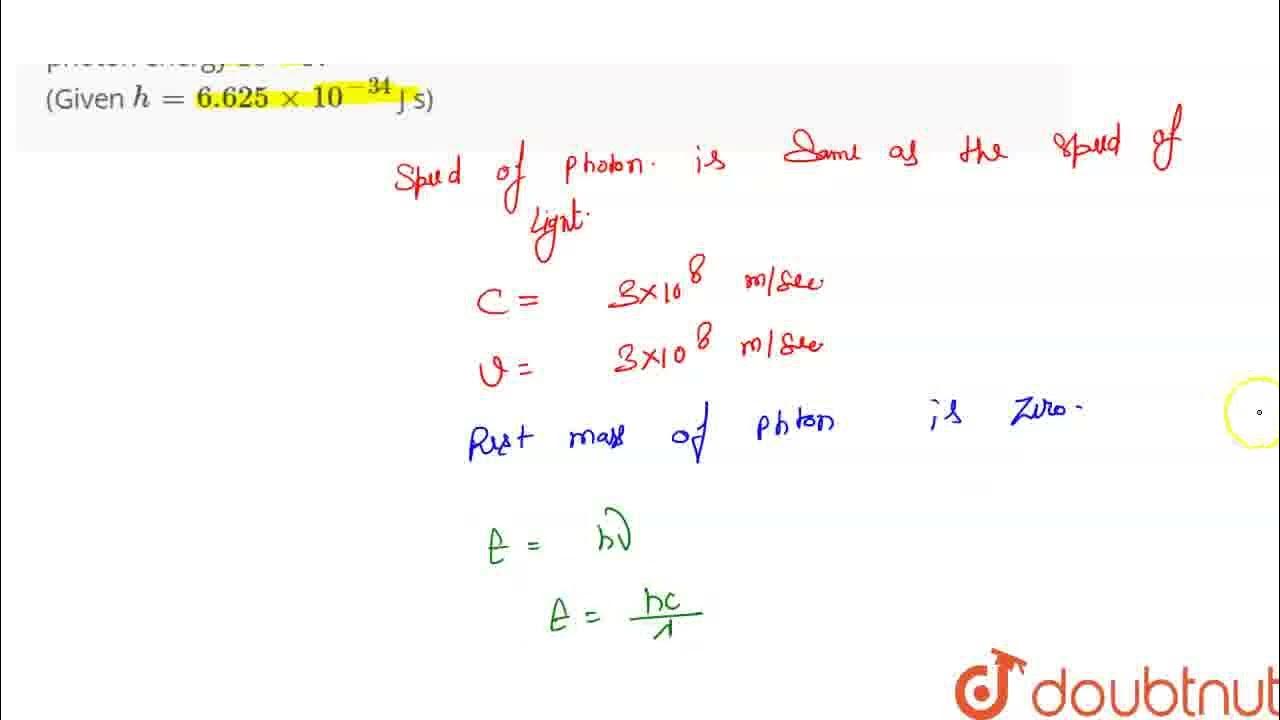 photon energy
(Given h = 6.625 × 10⁻³⁴ J s)
Speed of photon. is Same as the speed of
Light.
C = 3×10⁸ m/sec
v = 3×10⁸ m/sec
Rest mass of phton is zero.
E = hν
E = hc/λ
doubtnut